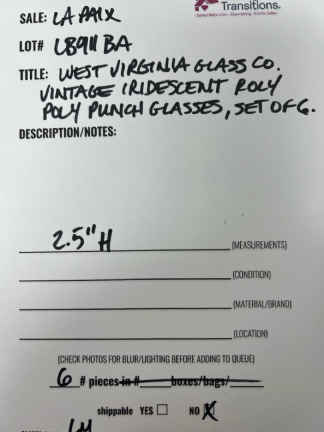 Transitions.
SALE: LA PAIX
LOT# L8911 BA
TITLE: WEST VIRGINIA GLASS CO.
VINTAGE IRIDESCENT ROLY
POLY PUNCH GLASSES, SET OF 6.
DESCRIPTION/NOTES:
2.5"H (MEASUREMENTS)
(CONDITION)
(MATERIAL/BRAND)
(LOCATION)
(CHECK PHOTOS FOR BLUR/LIGHTING BEFORE ADDING TO QUEUE)
6 # pieces in # boxes/bags/
shippable YES ☐ NO ☒